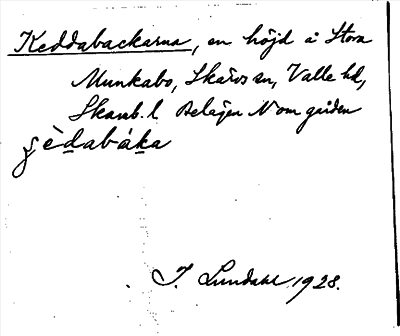 Keddabackarna, en höjd å Stora
Munkabo, Skärvs sn, Valle hd,
Skarab. l. Belägen N om gården
I. Lundahl 1928.